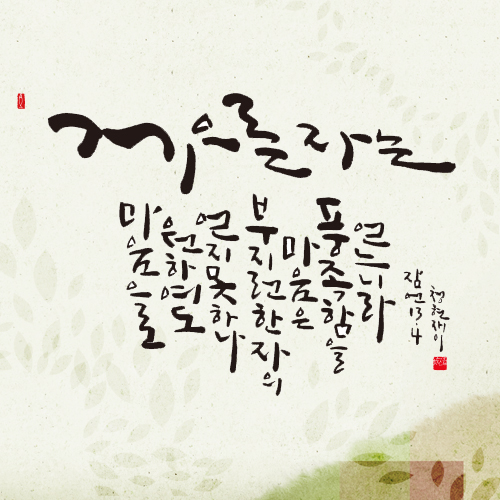 게으른 자는
마음으로
원하여도
얻지못하나
부지런한자의
마음은
풍족함을
얻느니라
잠언13.4
청현재이